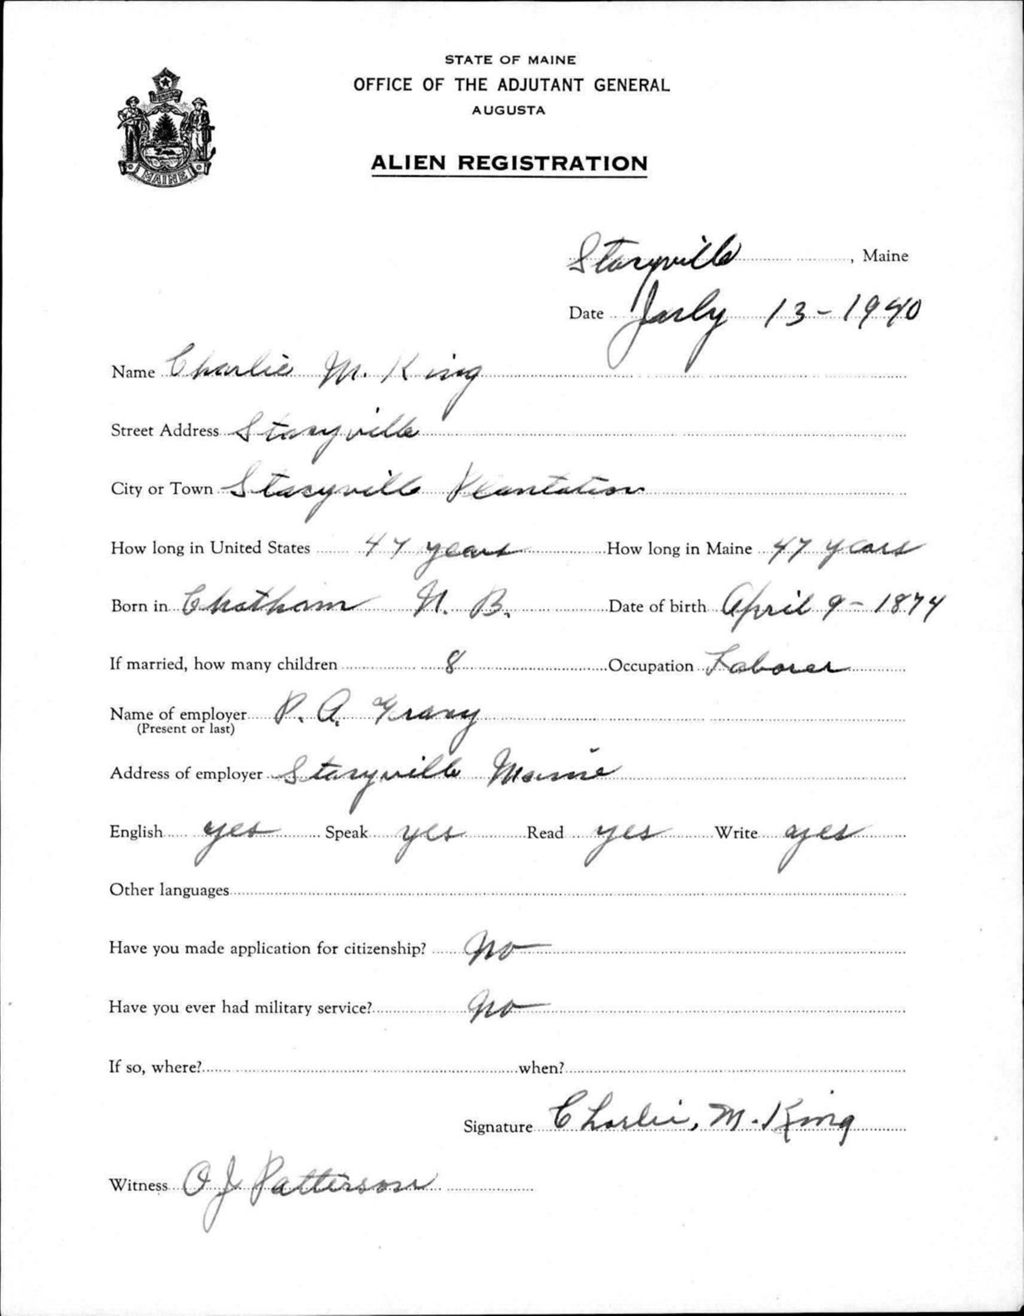 STATE OF MAINE
OFFICE OF THE ADJUTANT GENERAL
AUGUSTA
ALIEN REGISTRATION
MAINE
Stacyville, Maine
Date July 13-1940
Name Charlie M. King
Street Address Stacyville
City or Town Stacyville Plantation
How long in United States 47 years How long in Maine 47 years
Born in Chatham N. B. Date of birth April 9-1874
If married, how many children 8 Occupation Laborer
Name of employer P. A.
(Present or last)
Address of employer Stacyville Maine
English yes Speak yes Read yes Write yes
Other languages
Have you made application for citizenship? No
Have you ever had military service? No
If so, where? when?
Signature Charlie, M. King
Witness O J Patterson